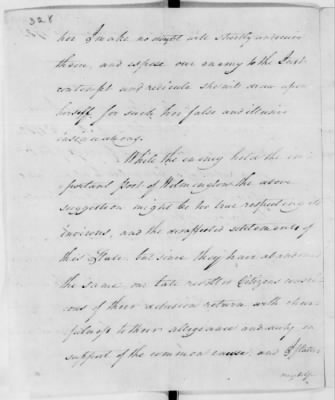 328
her I make no doubt will shortly undeceive
them, and expose our enemy to the Just
contempt and ridicule she will draw upon
herself for such her false and illusive
insinuations.
While the enemy held the im-
portant Post of Wilmington the above
suggestion might be too true respecting its
environs, and the disaffected settlements of
this State, but since they have abandoned
the same our late revolted Citizens consci-
ous of their delusion return with chear-
fulness to their allegiance and duty in
support of the common cause, and I flatter
myself